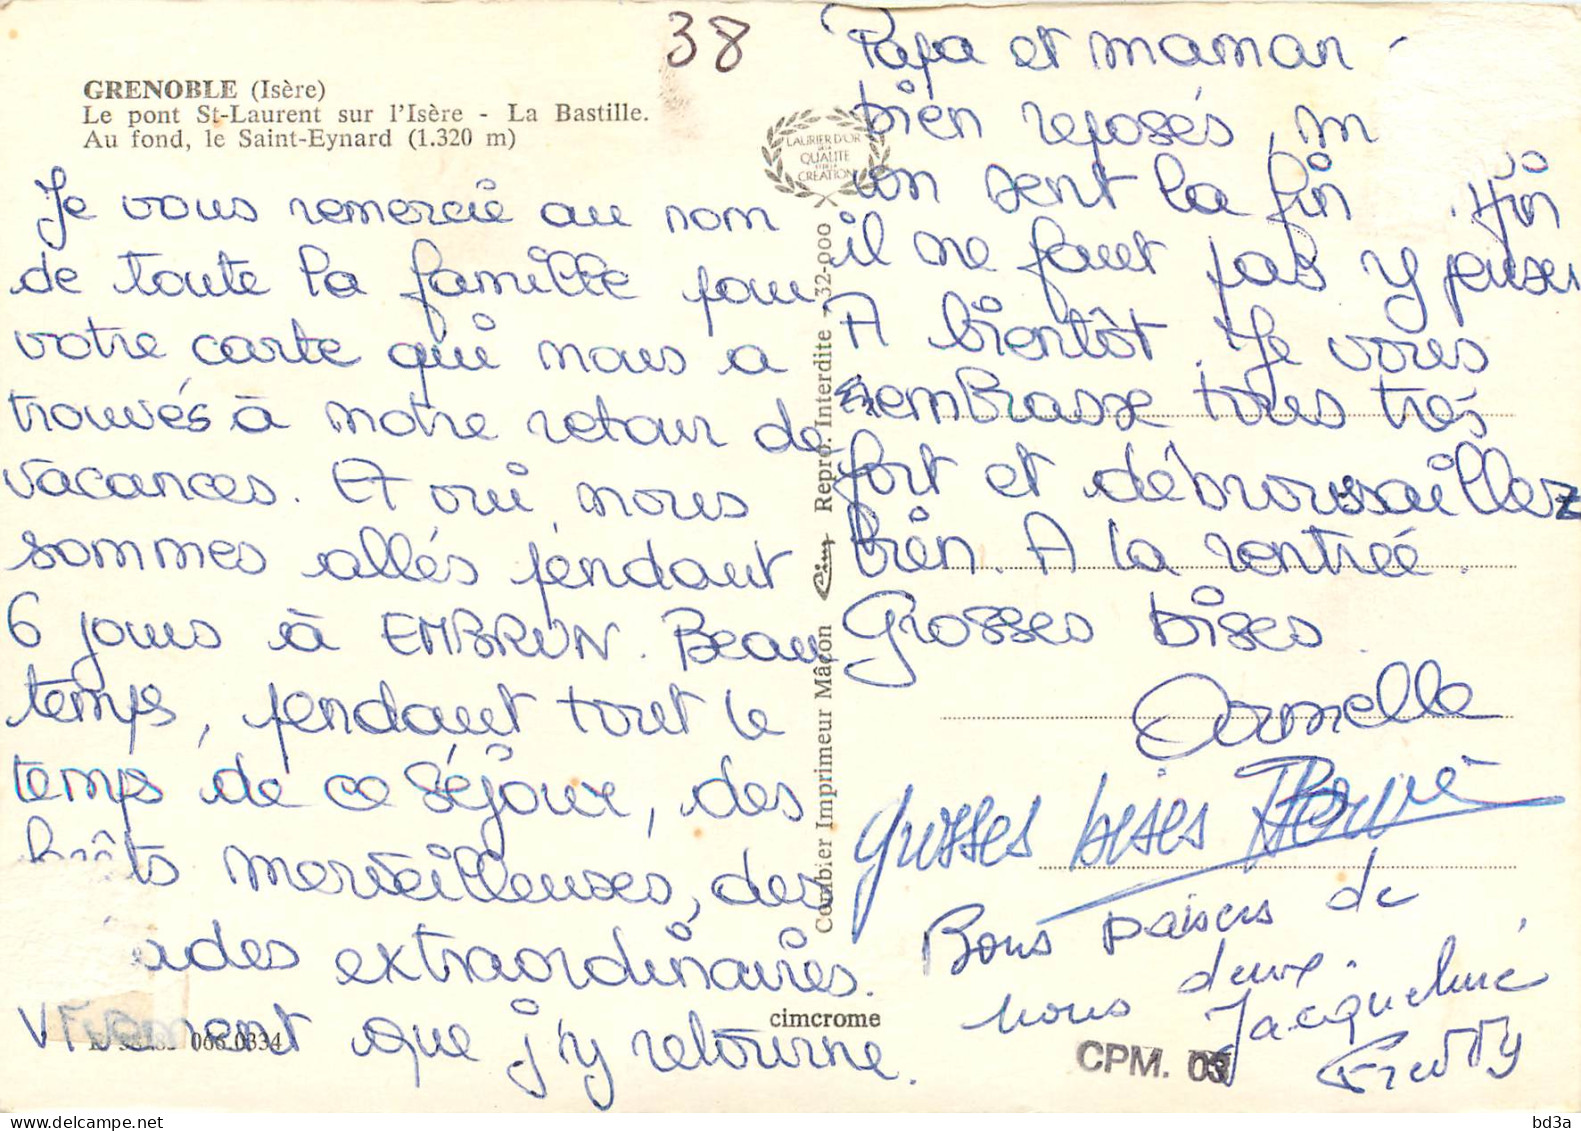 38
GRENOBLE (Isère)
Le pont St-Laurent sur l'Isère - La Bastille.
Au fond, le Saint-Eynard (1.320 m)
Je vous remercie au nom
de toute la famille pour
votre carte qui nous a
trouvés à notre retour de
vacances. Et oui, nous
sommes allés pendant
6 jours à EMBRUN. Beau
temps, pendant tout le
temps de ce séjour, des
merveilleuses, des
extraordinaires.
Vivement que j'y retourne.
066.0334
cimcrome
Combier Imprimeur Mâcon Cim Repro. Interdite - 32-000
LAURIER D'OR
DE LA
QUALITÉ
ET DE LA
CREATION
Papa et maman
bien reposés, m
on sent la fin
il ne faut pas y penser
A bientôt. Je vous
embrasse tous très
fort et débroussaillez
bien. A la rentrée.
Grosses bises
Armelle
grosses bises Hervé
Bons baisers de
nous deux.
Jacqueline
Freddy
CPM. 03
bd3a